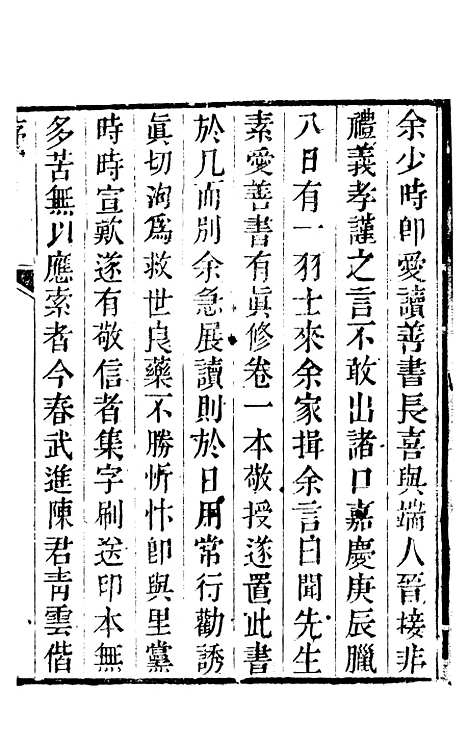 余少時即愛讀善書長喜與端人晉接非
禮義孝謹之言不敢出諸口嘉慶庚辰臘
八日有一羽士來余家揖余言曰聞先生
素愛善書有眞修卷一本敬授遂置此書
於几而別余急展讀則於日用常行勸誘
眞切洵爲救世良藥不勝忻忭卽與里黨
時時宣歎遂有敬信者集字刷送印本無
多苦無以應索者今春武進陳君靑雲偕
序